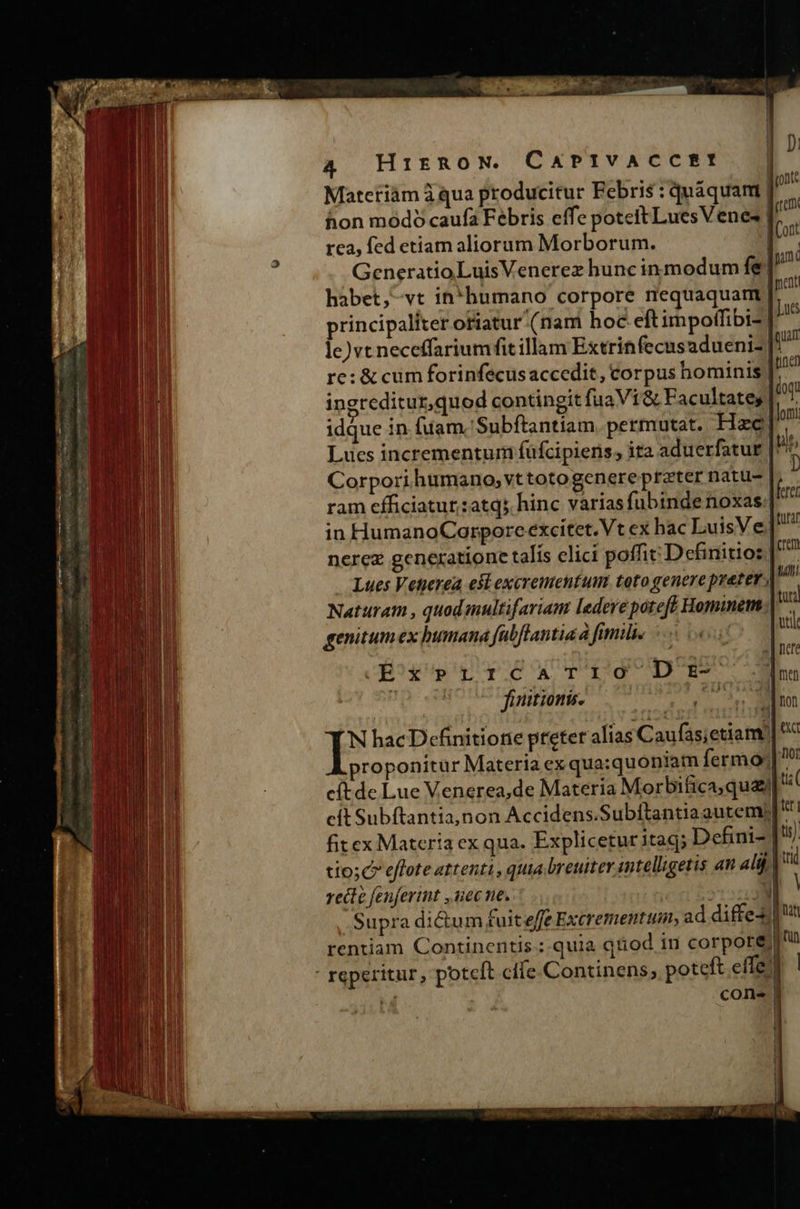 4 HIERON. CAPIVACCEI
Materiam à qua producitur Febris: quáquam
non modò causa Febris esse potest Lues Vene-
rea, sed etiam aliorum Morborum.
Generatio Luis Venereæ hunc in modum se
habet, vt in humano corpore nequaquam
principaliter oriatur (nam hoc est impossibi-
le) vt necessarium sit illam Extrinsecus adueni-
re: & cum forinsecus accedit, corpus hominis
ingreditur, quod contingit sua Vi & Facultate,
idque in suam Substantiam permutat. Hæc
Lues incrementum suscipiens, ita aduersatur
Corpori humano, vt toto genere præter natu-
ram efficiatur: atq; hinc varias subinde noxas
in Humano Corpore excitet. Vt ex hac Luis Ve
nereæ generatione talis elici possit Definitio:
Lues Venerea est excrementum toto genere preter
Naturam, quod multifariam ledere potest Hominem
genitum ex humana substantia à simili.
EXPLICATIO DE-
finitionis.
IN hac Definitione preter alias Causas, etiam
proponitur Materia ex qua: quoniam sermo
est de Lue Venerea, de Materia Morbifica, quæ
est Substantia, non Accidens. Substantia autem
fit ex Materia ex qua. Explicetur itaq; Defini-
tio; & estote attenti, quia breuiter intelligetis an alij
recte senserint, nec ne.
Supra dictum fuit esse Excrementum, ad diffe-
rentiam Continentis: quia quod in corpore
reperitur, potest esse Continens, potest esse
con-